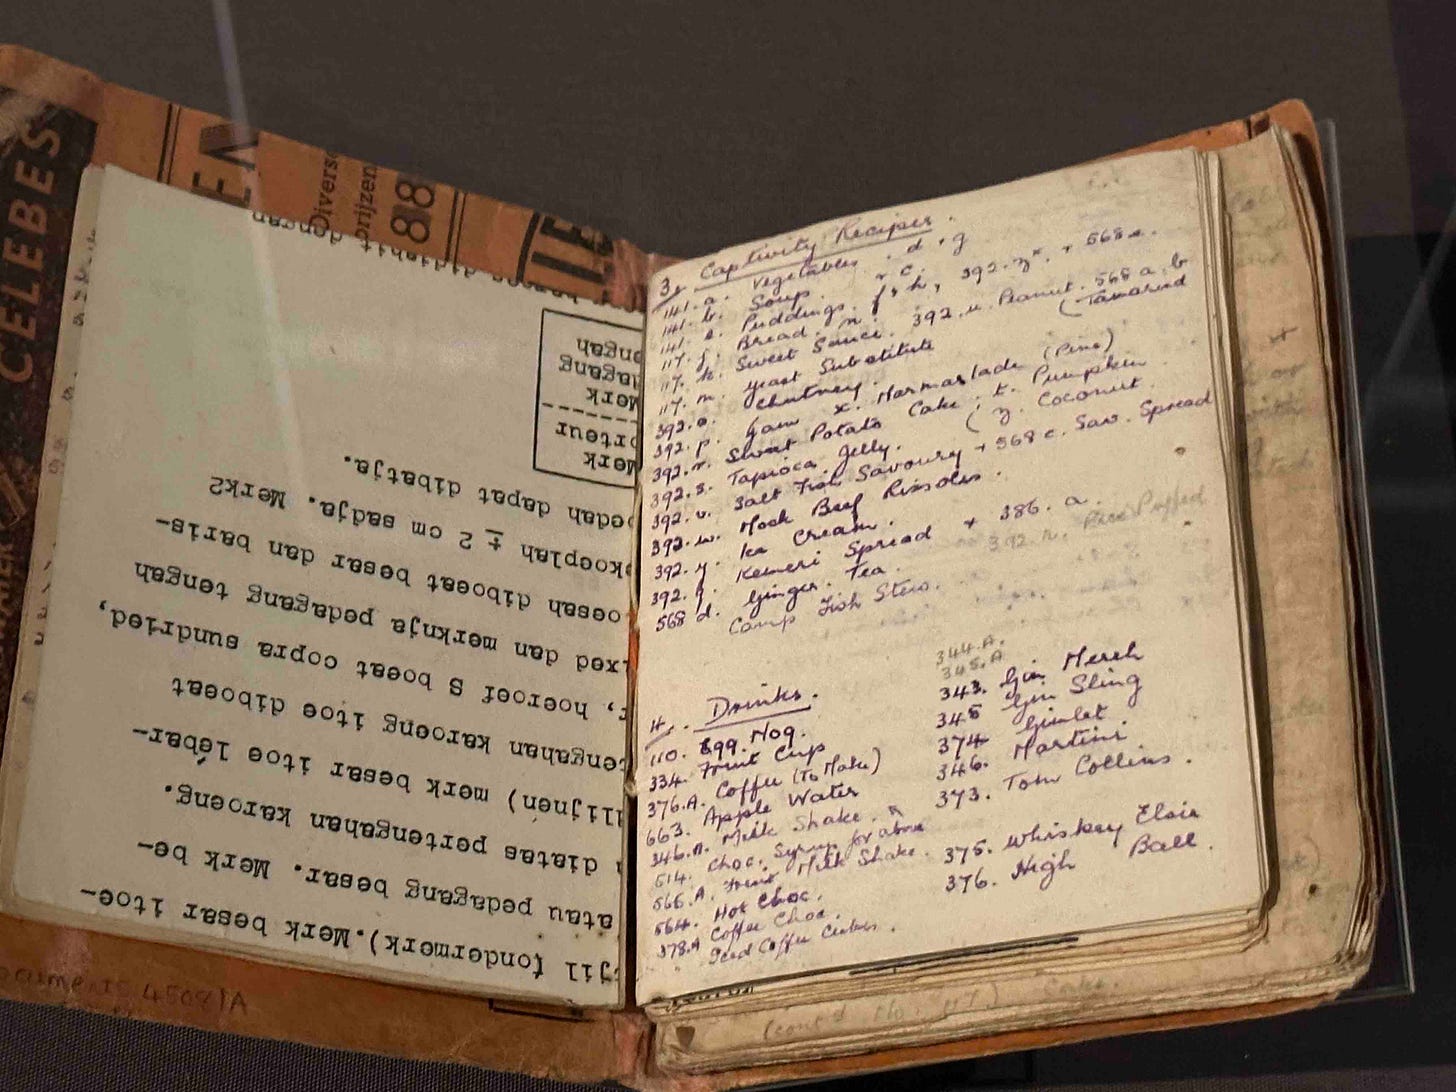 CELEBES
EN
Divers
prijzen
88
tjil (ondermerk). Merk besar itoe-
atau pedagang besar. Merk be-
diatas pertengahan karoeng.
llijnen) merk besar itoe lébar-
engahan karoeng itoe diboeat
, hoeroef S boeat copra sundried,
xed dan merknja pedagang tengah
oesah diboeat besar dan baris-
koeplah ± 2 cm sadja. Merk2
edah dapat dibatja.
Merk
orteur
Merk
dagang
engah
dengan
ocuments 4508 A
3. Captivity Recipes.
141. a. Vegetables. d. g
141. b. Soup. + c.
141. e. Puddings. f, h, 392. z*. + 568 e.
117. j. Bread. n.
117. k. Sweet Sauce. 392. u. Peanut. 568 a, b
117. m. Yeast Substitute (Tamarind
392. o. Chutney.
392. p. Jam x. Marmalade (Pine)
392. r. Sweet Potato Cake; t. Pumpkin
392. s. Tapioca Jelly. (z. Coconut.
392. v. Salt Fish Savoury + 568 c. Sav. Spread
392. w. Mock Beef Rissoles.
392. y. Ice Cream.
392. q. Kemeri Spread + 386. a.
568 d. Ginger Tea. 392. n. Rice Puffed
Camp Fish Stew.
4. Drinks.
110. Egg. Nog.
334. Fruit Cup
376.A. Coffee (To Make)
663. Apple Water
346.A. Milk Shake.
514. Choc. Syrup for above
566.A. Fruit Milk Shake.
564. Hot Choc.
378.A Coffee Choc.
Iced Coffee Cubes.
344.A.
345.A
343. Gin Mersh
345 Gin Sling
374 Gimlet
346. Martini.
373. Tom Collins.
375. Whiskey Elsie
376. High Ball.
(cont'd No. 117) Cake.